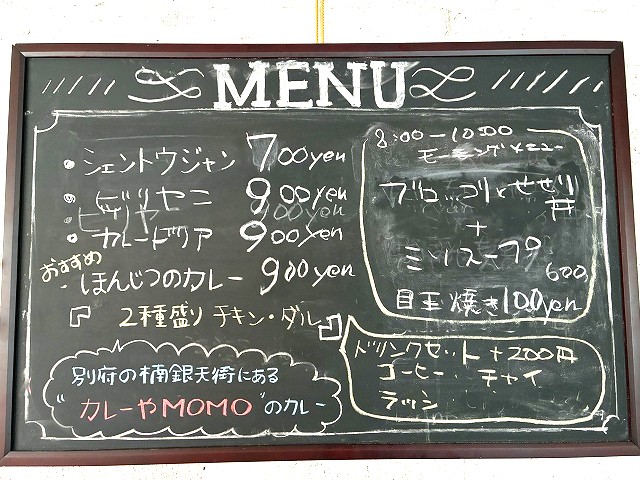 MENU
・シェントウジャン 700yen
・ビリヤニ 900yen
・カレードリア 900yen
おすすめ
・ほんじつのカレー 900yen
「2種盛り チキン・ダル」
別府の楠銀天街にある
"カレーやMOMO"のカレー
8:00-10:00
モーニングメニュー
ブロッコリとせせり丼
+
ミソスープ
600
目玉焼き100yen
ドリンクセット +200円
コーヒー チャイ
ラッシ